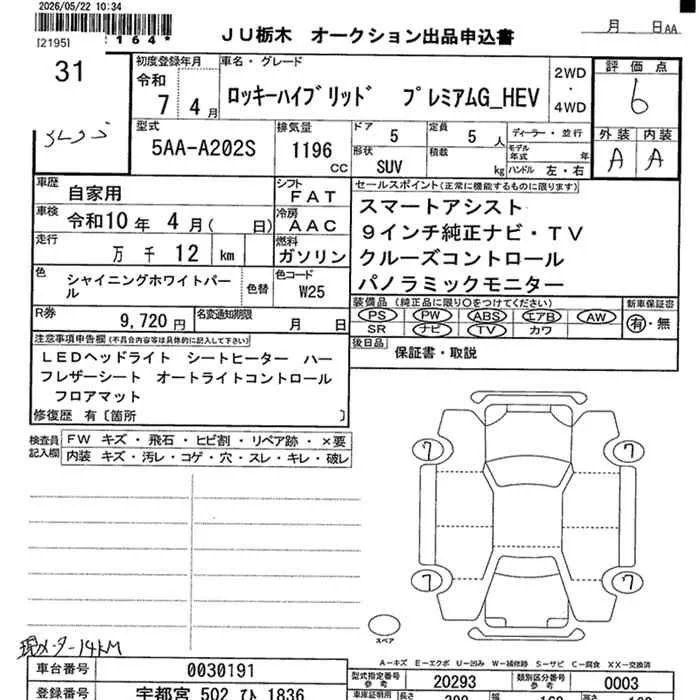 2026/05/22 10:34
[2195]
*164*
月 日AA
JU栃木 オークション出品申込書
31
初度登録年月
令和
7 4月
車名・グレード
ロッキーハイブリッド プレミアムG_HEV
2WD
・
4WD
評価点
6
外装 内装
A A
型式
5AA-A202S
排気量
1196
CC
ドア
5
定員
5
人
ディーラー・並行
モデル
年式
年
形状
SUV
積載
kg
ハンドル 左・右
車歴
自家用
シフト
FAT
車検
令和10年 4月( 日)
冷房
AAC
走行
万 千 12 km
燃料
ガソリン
色
シャイニングホワイトパール
色替
色コード
W25
R券
9,720円
名変通知期限
月 日
セールスポイント(正常に機能するものに限ります)
スマートアシスト
9インチ純正ナビ・TV
クルーズコントロール
パノラミックモニター
装備品 (純正品に限り○をつけてください)
PS PW ABS エアB AW
SR ナビ TV カワ
新車保証書
有・無
後日品
保証書・取説
注意事項申告欄(不具合内容等は具体的に記入して下さい)
LEDヘッドライト シートヒーター ハー
フレザーシート オートライトコントロール
フロアマット
修復歴 有〔箇所 〕
検査員
記入欄
FW キズ・飛石・ヒビ割・リペア跡・×要
内装 キズ・汚レ・コゲ・穴・スレ・キレ・破レ
7 7
7 7
スペア
現メーター14KM
A−キズ E−エクボ U−凹み W−補修跡 S−サビ C−腐食 XX−交換済
車台番号
0030191
型式指定番号
参考
20293
類別区分番号
参考
0003
登録番号
宇都宮 502 ひ 1836
車庫証明用
長さ